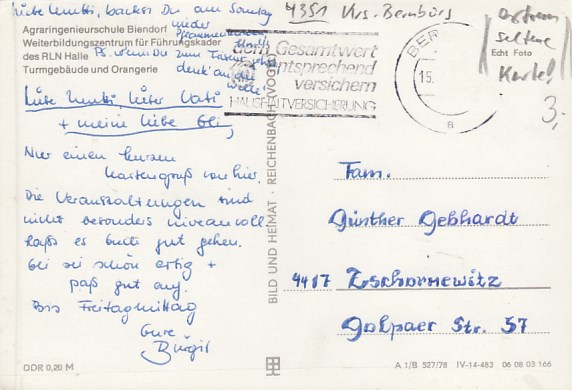 Liebe Mutti, backst Du am Sonntag
wieder
Pflaumenkuchen,
Ps. wenn Du zum
denk' an die
Wolle!
Agraringenieurschule Biendorf
Weiterbildungszentrum für Führungskader
des RLN Halle
Turmgebäude und Orangerie
Liebe Mutti, lieber Vati
+ meine liebe Gli,
Nur einen kurzen
Kartengruß von hier.
Die Veranstaltungen sind
nicht besonders niveauvoll.
Laßt es Euch gut gehen.
Gli sei schön artig +
paß gut auf.
Bis Freitagmittag
Eure
Birgit
DDR 0,20 M
4351 Krs. Bernburg
zum Gesamtwert
entsprechend
versichern
HAUSHALTVERSICHERUNG
BER
15.
a
extrem
seltene
Echt Foto
Karte!
3,-
BILD UND HEIMAT · REICHENBACH (VOGTL)
Fam.
Günther Gebhardt
4417 Zschornewitz
Golpaer Str. 57
A 1/B 527/78 IV-14-483 06 08 03 166